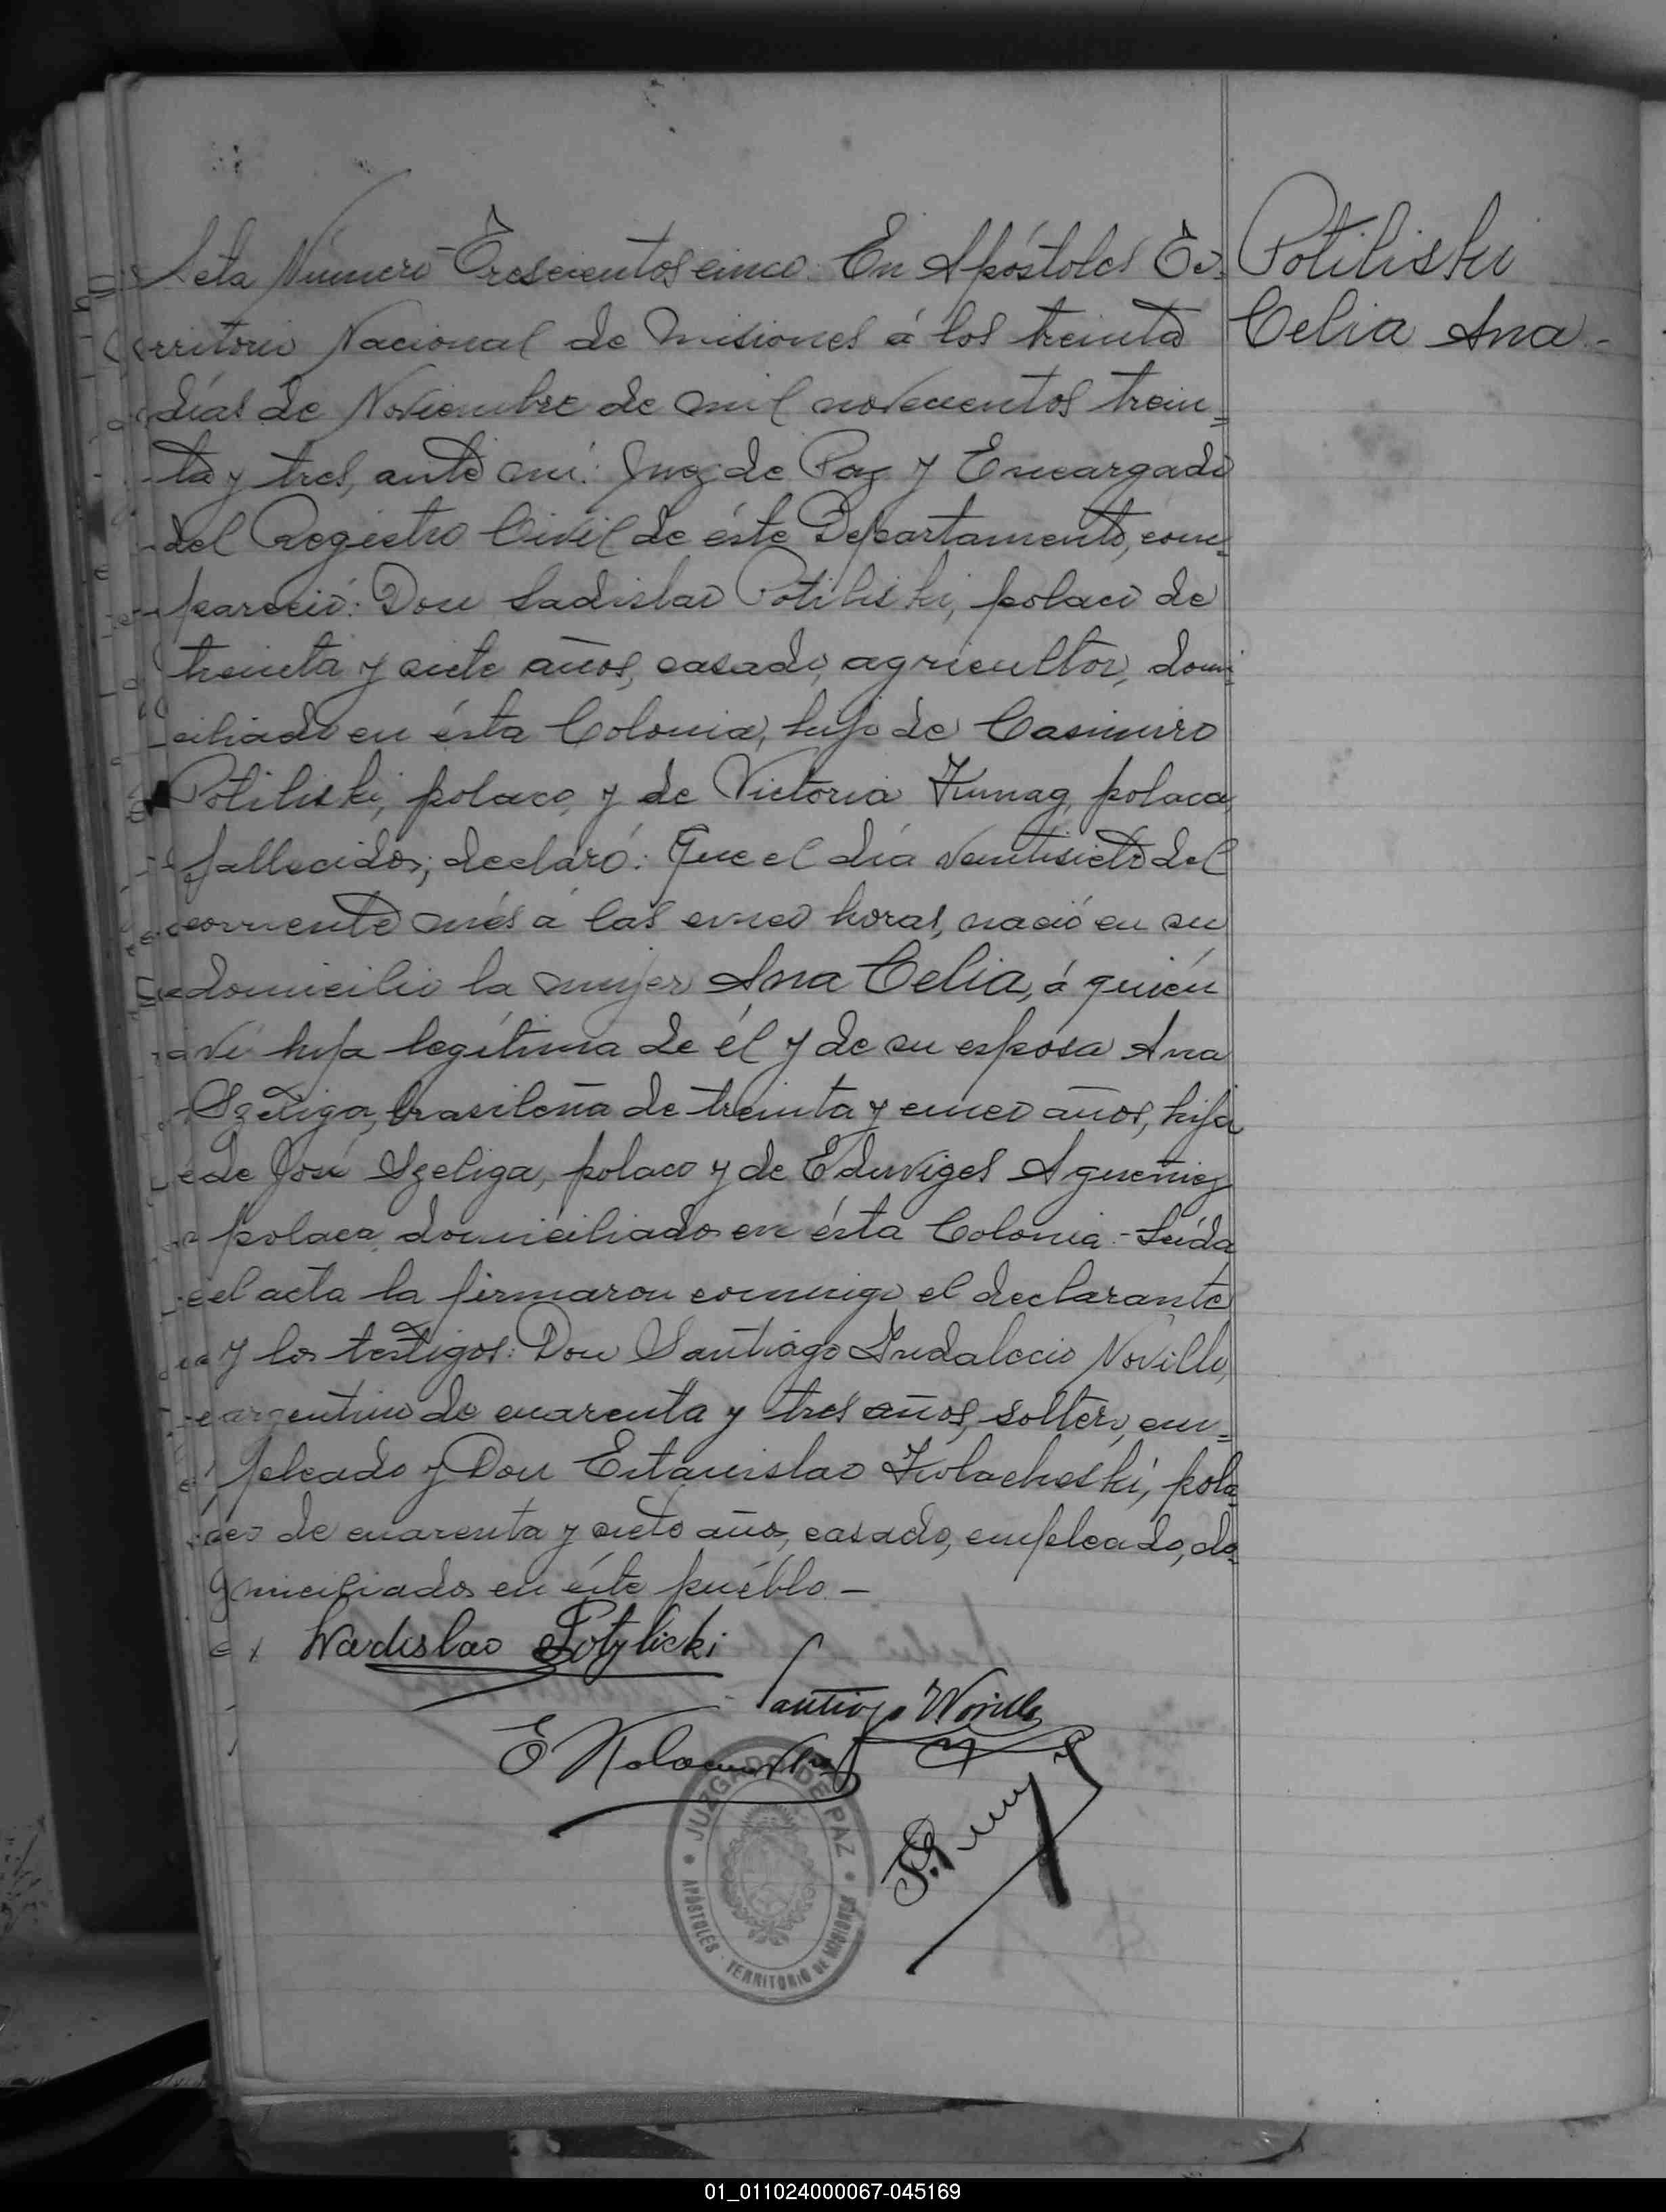 Acta Número Trescientos cinco. En Apóstoles Te-
rritorio Nacional de Misiones á los treinta
días de Noviembre de mil novecientos trein=
ta y tres, ante mí: Juez de Paz y Encargado
del Registro Civil de éste Departamento, com=
pareció: Don Ladislao Potiliski, polaco de
treinta y siete años, casado, agricultor, domi-
ciliado en ésta Colonia, hijo de Casimiro
Potiliski, polaco, y de Victoria polaca,
fallecidos; declaró: Que el día veintisiete del
corriente més á las cinco horas, nació en su
domicilio la mujer Ana Celia, á quién
ví hija legítima de él y de su esposa Ana
Szeliga, brasileña de treinta y cinco años, hija
de José Szeliga, polaco y de Eduviges
polaca, domiciliados en ésta Colonia.- Leída
el acta la firmaron conmigo el declarante
y los testigos: Don Santiago Indalecio Novillo,
argentino de cuarenta y tres años, soltero, em=
pleado y Don Estanislao Kolacheski, pola-
co de cuarenta y siete años, casado, empleado, do-
miciliados en éste puéblo.-
Potiliski
Celia Ana.-
Wadislao Potylicki
Santiago Novillo
JUZGADO DE PAZ
APÓSTOLES - TERRITORIO DE MISIONES
01_011024000067-045169